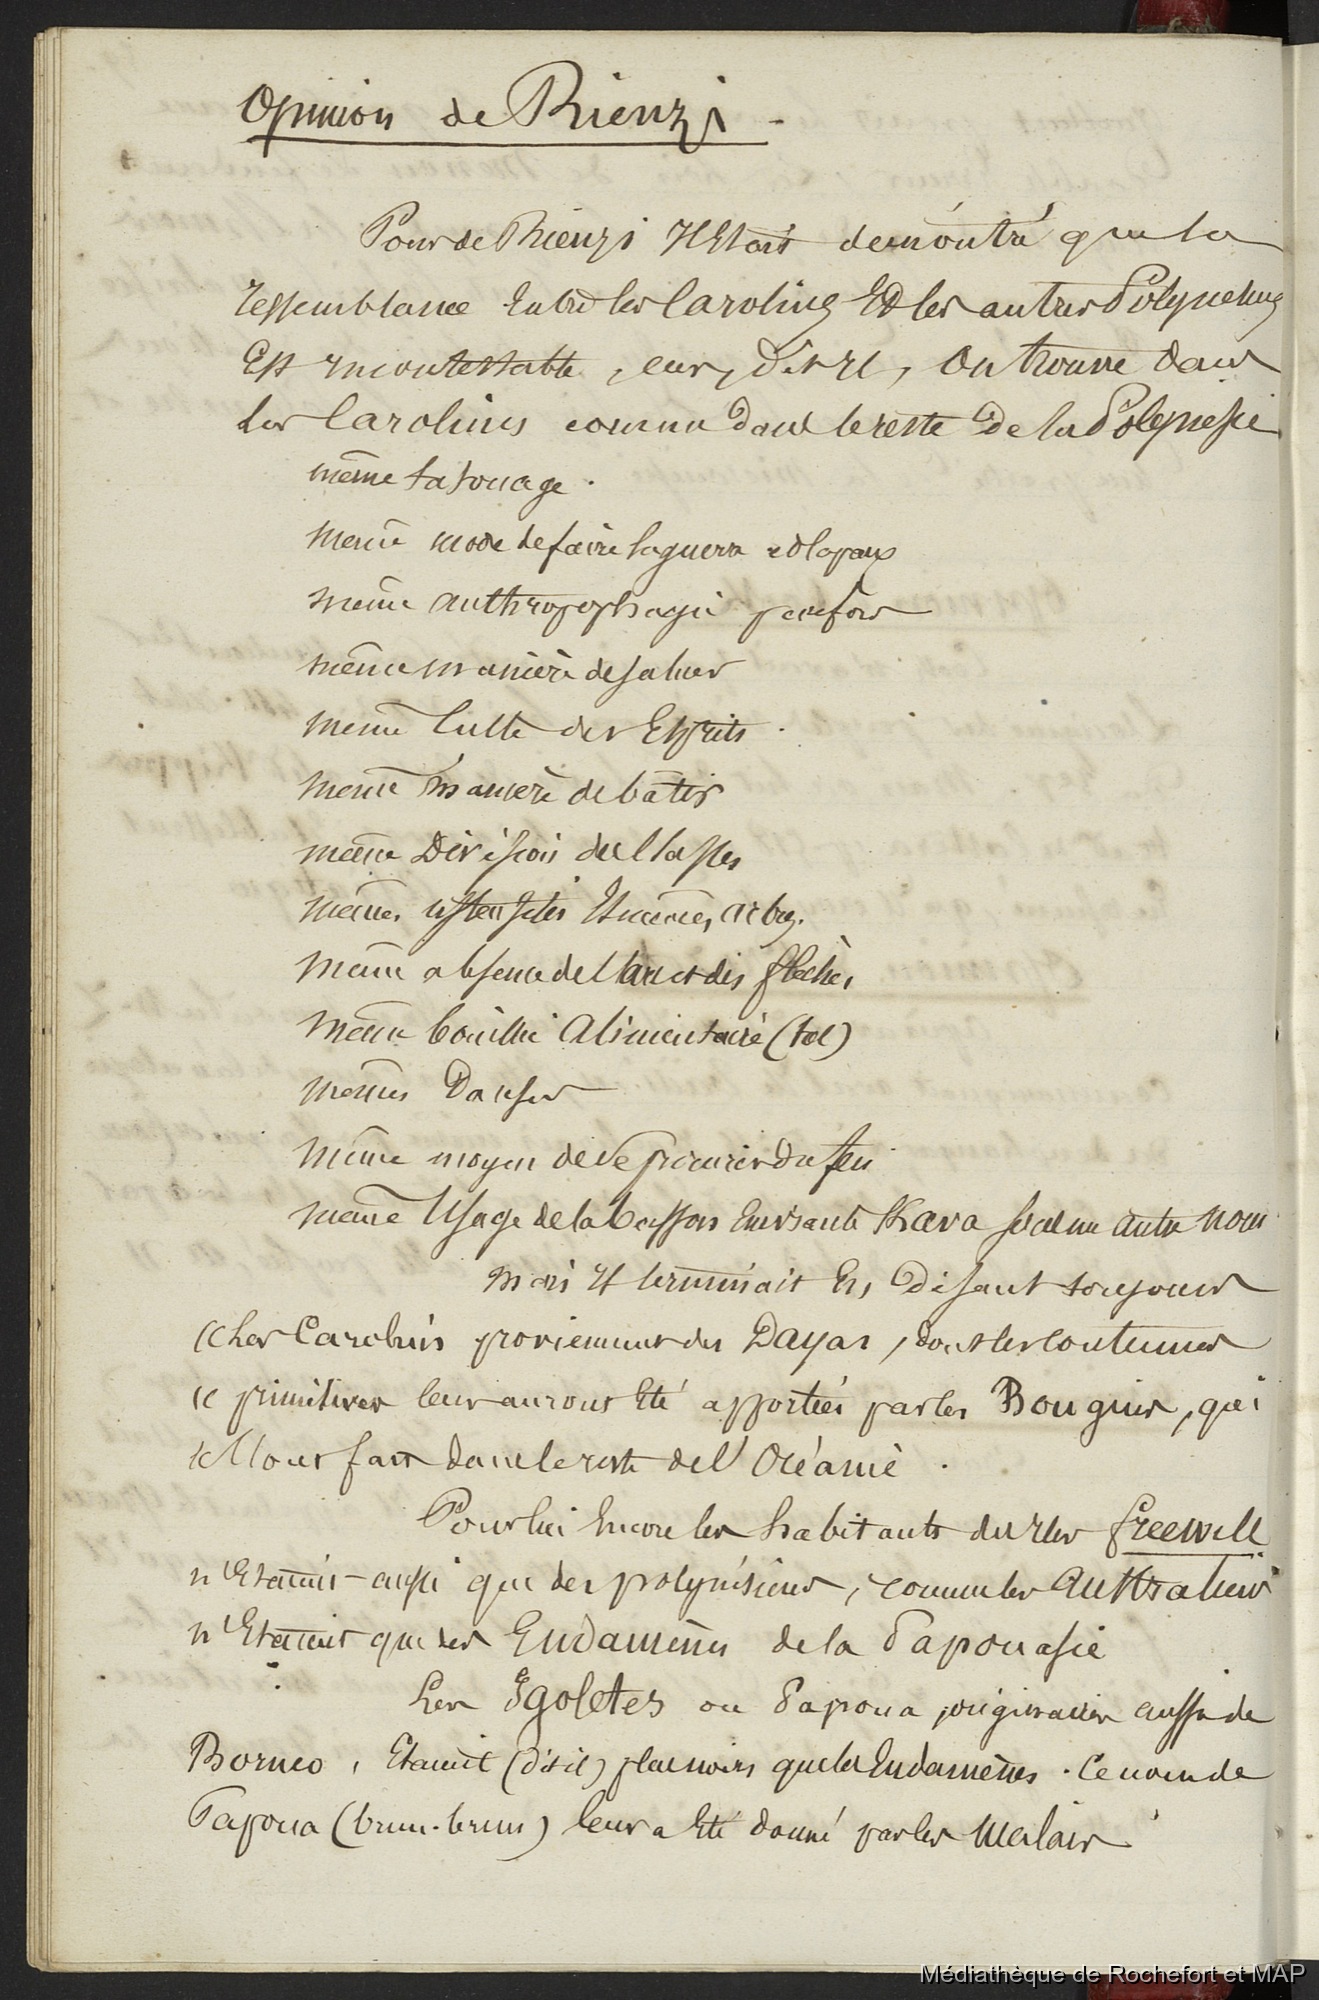 Opinion de Rienzi -
Pour de Rienzi il était démontré que la
ressemblance entre les Carolins et les autres Polynesiens
est incontestable, car, dit il, on trouve dans
les Carolines comme dans le reste de la Polynesie
même tatouage.
même mode de faire la guerre et la paix
même anthropophagie parfois
même manière de saluer
même culte des Esprits.
même manière de bâtir
même Division de Classes
mêmes ustensiles et mêmes arbres.
même absence de l'arc et des flèches
même bouillie alimentaire
mêmes Danses
même moyen de se procurer du feu
même usage de la boisson enivrante Kava sous un autre nom
mais il terminait en disant toujours
« les Carolins proviennent des Dayas, dont les coutumes
« primitives leur auront été apportées par les Bouguis, qui
« l'ont fait dans le reste de l'Océanie.
Pour lui encore les habitants des iles freewill
n'étaient aussi que des polynésiens, comme les Australiens
n'étaient que des Endamènes de la Papouasie
Les Igolotes ou Papoua, originaires aussi de
Borneo, étaient (dit il) plus noirs que les Endamènes. Ce nom de
Papoua (brun-brun) leur a été donné par les Malais
Médiathèque de Rochefort et MAP